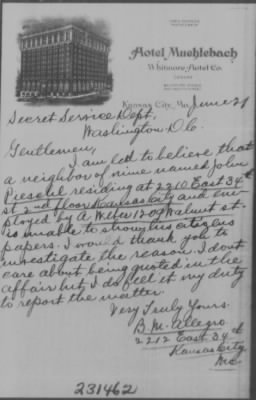 Hotel Muehlebach
Whitmore Hotel Co.
Kansas City, Mo. June 21
Secret Service Dept,
Washington D.C.
Gentlemen,
I am led to believe that
a neighbor of mine named John
residing at 2210 East 34th
st 2nd floor Kansas City and em-
ployed by A. 1209 Walnut st.
is unable to show his citizens
papers. I would thank you to
investigate the reason. I dont
care about being quoted in the
affair but I do feel it my duty
to report the matter.
Very Truly Yours.
B. M. Allegro
2212 East 34th
Kansas City
Mo.
231462